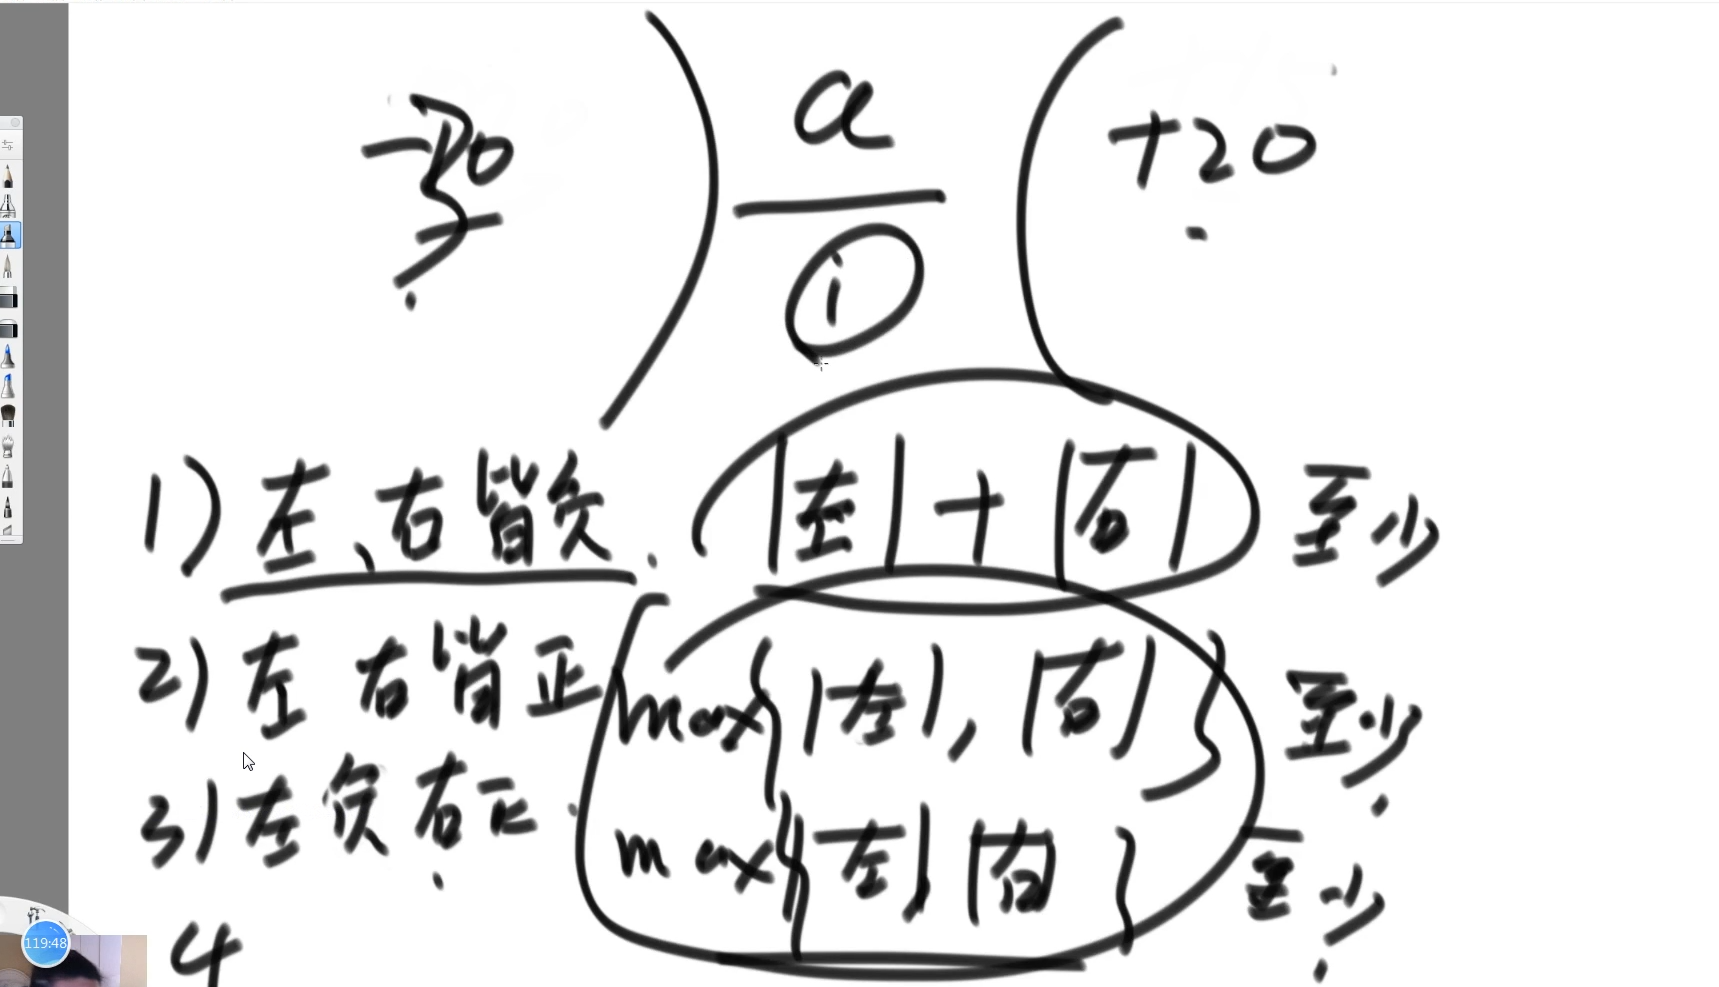 a
+20
i
1) 左、右皆负. |左| + |右| 至少
2) 左 右皆正 max{|左|, |右|} 至少.
3) 左负右正. max{|左| |右|} 至少.
4
119:48